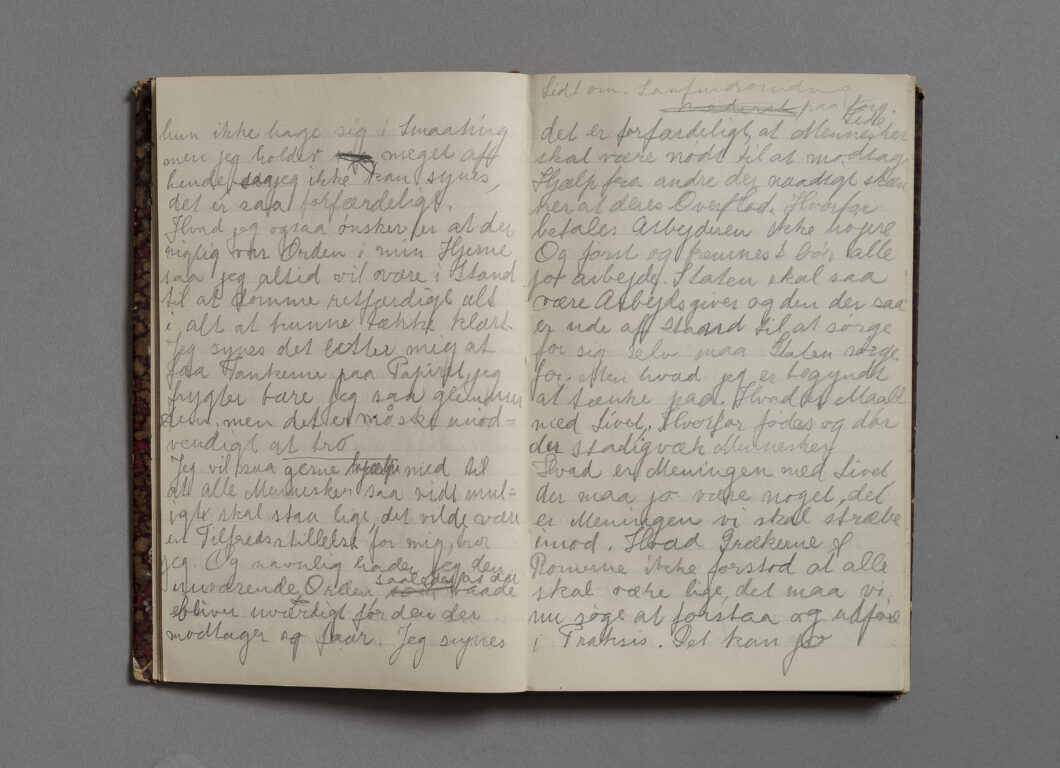 hun ikke tage sig i Smaating
men jeg holder meget aff
hende, jeg ikke kan synes,
det er saa forfærdeligt.
Hvad jeg ogsaa ønsker er at der
rigtig var Orden i min Hjerne
saa jeg altid vil være i Stand
til at dømme retfærdigt alt
i alt at kunne tænke klart.
Jeg synes det letter mig at
faa Tankerne paa Papiret, jeg
frygter bare jeg saa glemmer
dem. men det er måske unød=
vendigt at tro.
Jeg vil saa gerne hjælpe med til
at alle Mennesker saa vidt mul=
igt skal staa lige, det vilde være
en Tilfredsstillelse for mig, tror
jeg. Og navnlig hader jeg den
nuværende Orden saaledes at det baade
bliver uværdigt for den der
modtager og faar. Jeg synes
Lidt om. Samfundsordning
paa forg.
Side
det er forfærdeligt, at Mennesker
skal være nødt til at modtage
Hjælp fra andre der naadigt skæn
ker af deres Overflod. Hvorfor
betales Arbejderen ikke højere
Og først og fremmest bør alle
jo arbejde. Staten skal saa
være Arbejdsgiver og den der saa
er ude aff Stand til at sørge
for sig selv maa Staten sørge
for. Men hvad jeg er begyndt
at tænke paa. Hvad er Maalet
med Livet, Hvorfor fødes og dør
der stadigvæk Mennesker
Hvad er Meningen med Livet
der maa jo være noget, det
er Meningen vi skal stræbe
imod. Hvad Grækerne &
Romerne ikke forstod at alle
skal være lige, det maa vi
nu søge at forstaa og udføre
i Praksis. Det kan jo